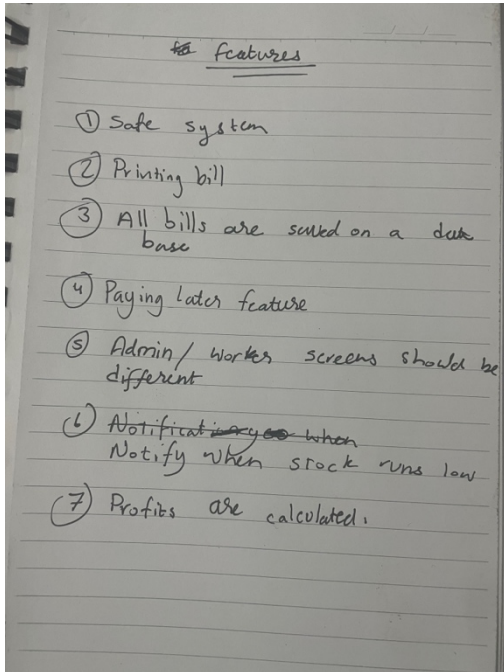 features
① Safe system
② Printing bill
③ All bills are saved on a data
base
④ Paying later feature
⑤ Admin/ worker screens should be
different
⑥ Notification when
Notify when stock runs low
⑦ Profits are calculated.